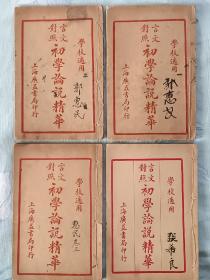 學校適用
二
郭惠民
言文對照
初學論說精華
上海廣益書局印行
學校適用
一
郭惠民
言文對照
初學論說精華
上海廣益書局印行
學校適用
言文對照
初學論說精華
上海廣益書局印行
學校適用
言文對照
初學論說精華
上海廣益書局印行